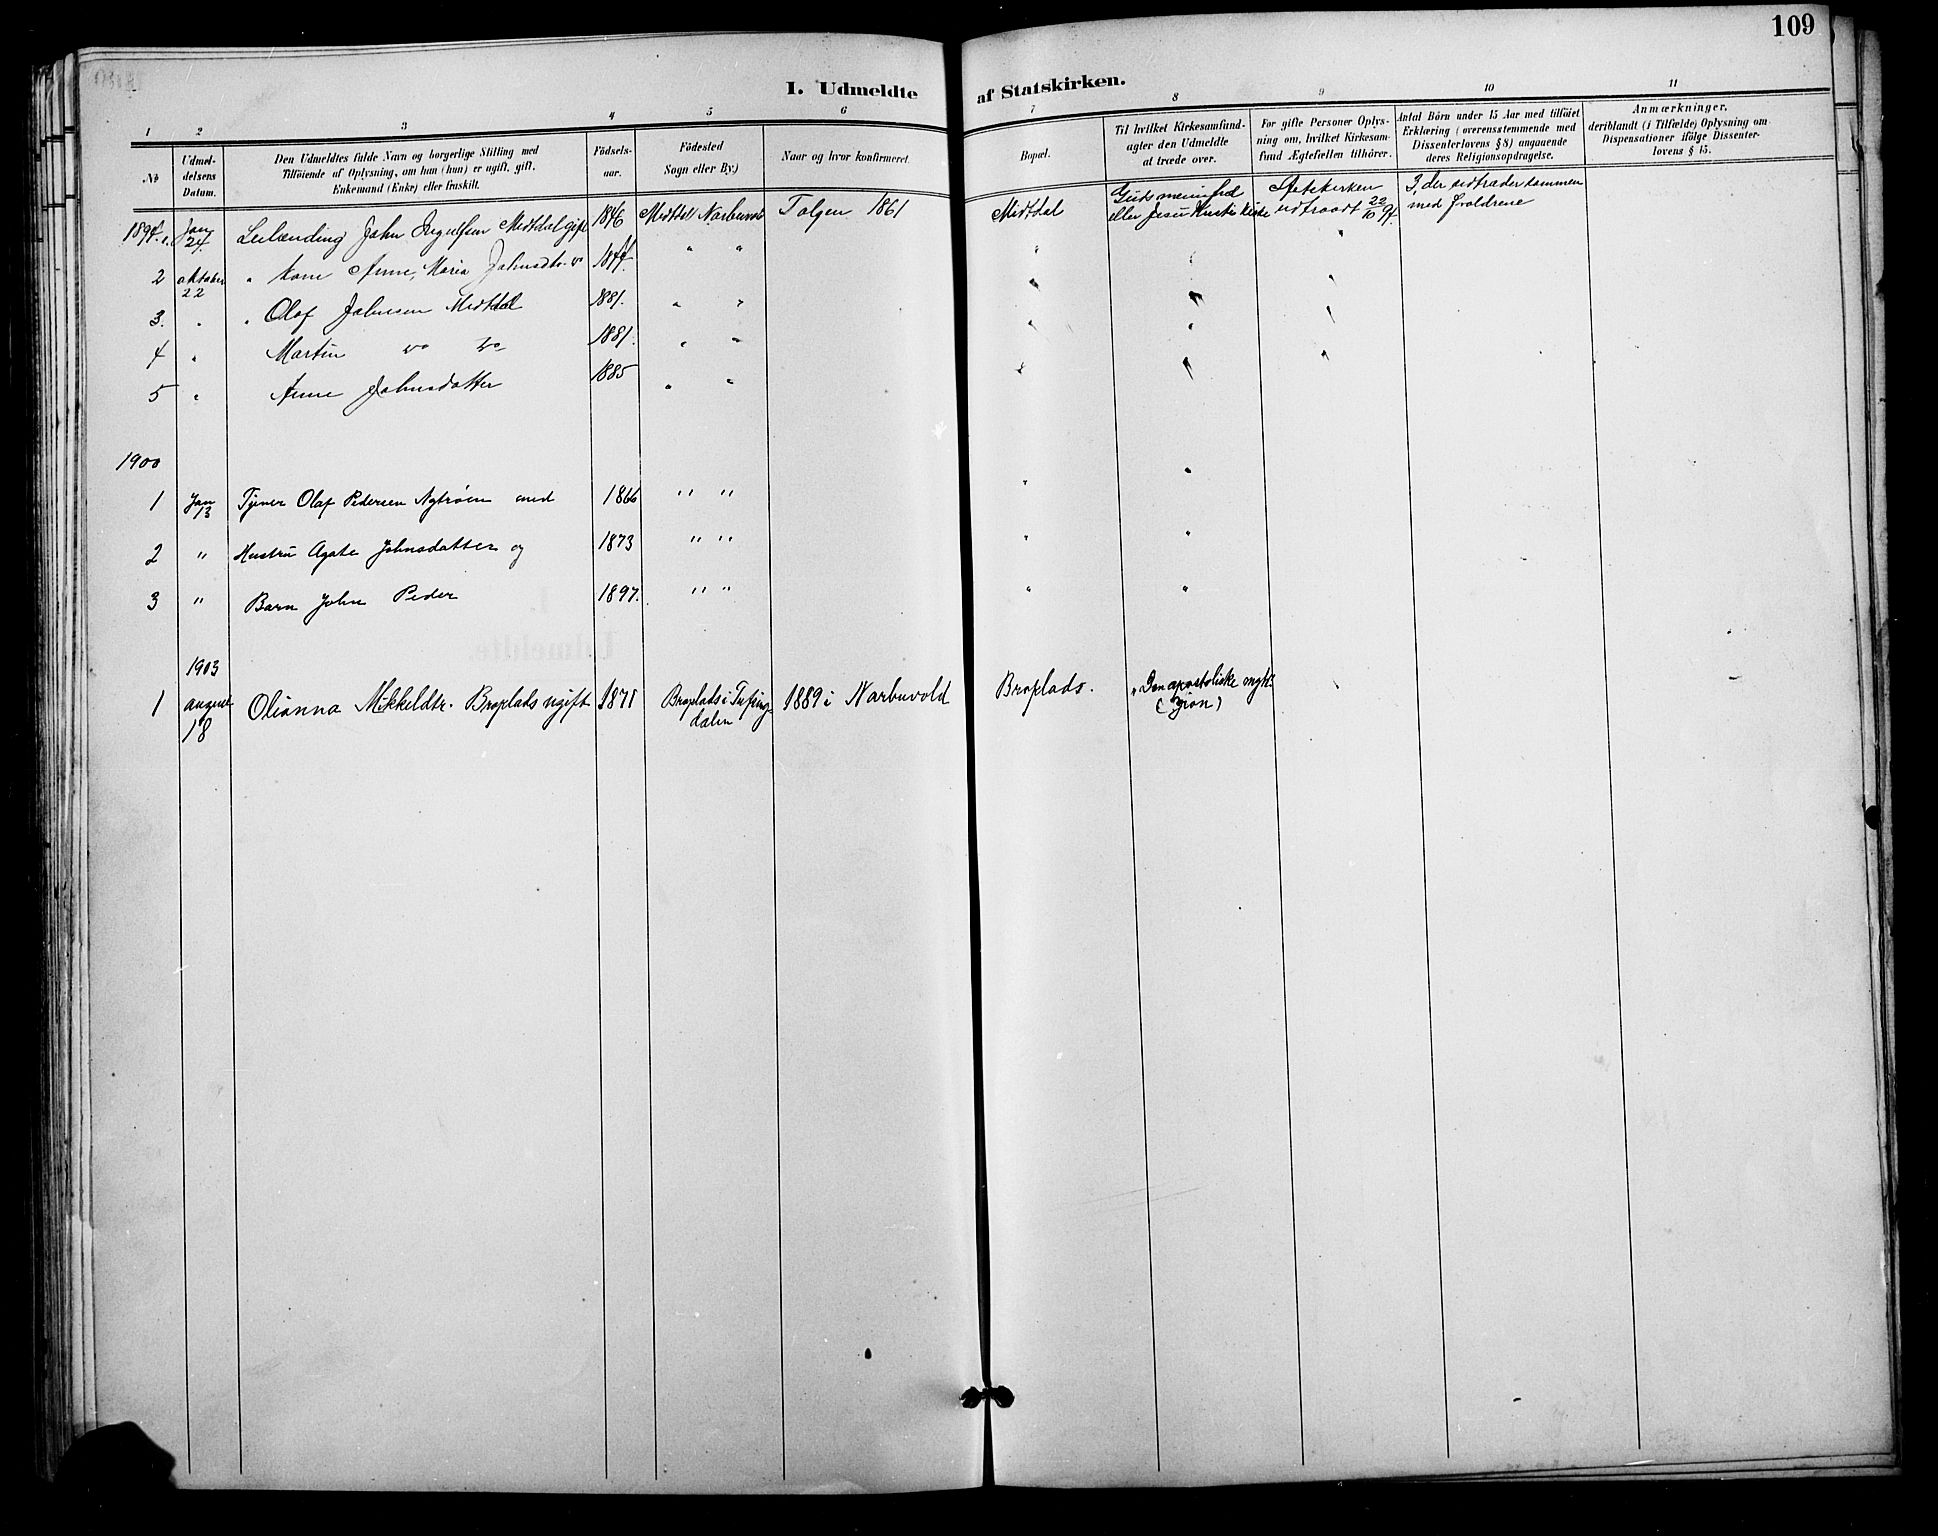 109
I. Udmeldte af Statskirken.
1 2 3 4 5 6 7 8 9 10 11
No
Udmeldelsens Datum.
Den Udmeldtes fulde Navn og borgerlige Stilling med
Tilföiende af Oplysning, om han (hun) er ugift, gift,
Enkemand (Enke) eller fraskilt.
Födselsaar.
Födested
Sogn eller By.)
Naar og hvor konfirmeret.
Bopæl.
Til hvilket Kirkesamfund
agter den Udmeldte
at træde over.
For gifte Personer Oplysning
om, hvilket Kirkesamfund
Ægtefællen tilhörer.
Antal Börn under 15 Aar med tilföiet
Erklæring (overensstemmende med
Dissenterlovens § 8) angaaende
deres Religionsopdragelse.
Anmærkninger,
deriblandt (i Tilfælde) Oplysning om
Dispensationer ifölge Dissenterlovens § 15.
1894. 1. Jan 24. Leilænding John Ingulfsen Midtdal gift 1846 Midtdal Narbuvold Tolgen 1861 Midtdal eller Jesu Kristi Kirke Statskirken udtraadt 22/10 94. 3, der udtræder sammen med forældrene
2 oktober 22 " Kone Anne Maria Johnsdtr. do 1844. " "
3. " " Olaf Johnsen Midtdal 1881. " "
4 " Martin do do 1881. " "
5 " Anne Johnsdatter 1885 " "
1900
1 Jan 13 Tjener Olaf Pedersen Nytrøen med 1866 " " " "
2 " Hustru Agate Johnsdatter og 1873 " " " "
3 " Barn John Peder 1897. " " " "
1903
1 august 18 Olianna Mikkeldtr. Broplads ugift 1871 Broplads i Tufsingdalen 1889 i Narbuvold Broplads. Den apostoliske mght. (Zion)